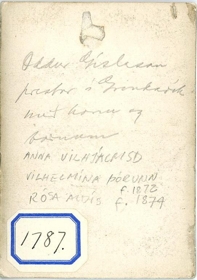 Oddur Gíslason
prestur í Grindavík
með konu og
börnum
ANNA VILHJÁLMSD
VILHELMÍNA ÞÓRUNN
f. 1872
RÓSA ALDÍS f. 1874
1787.